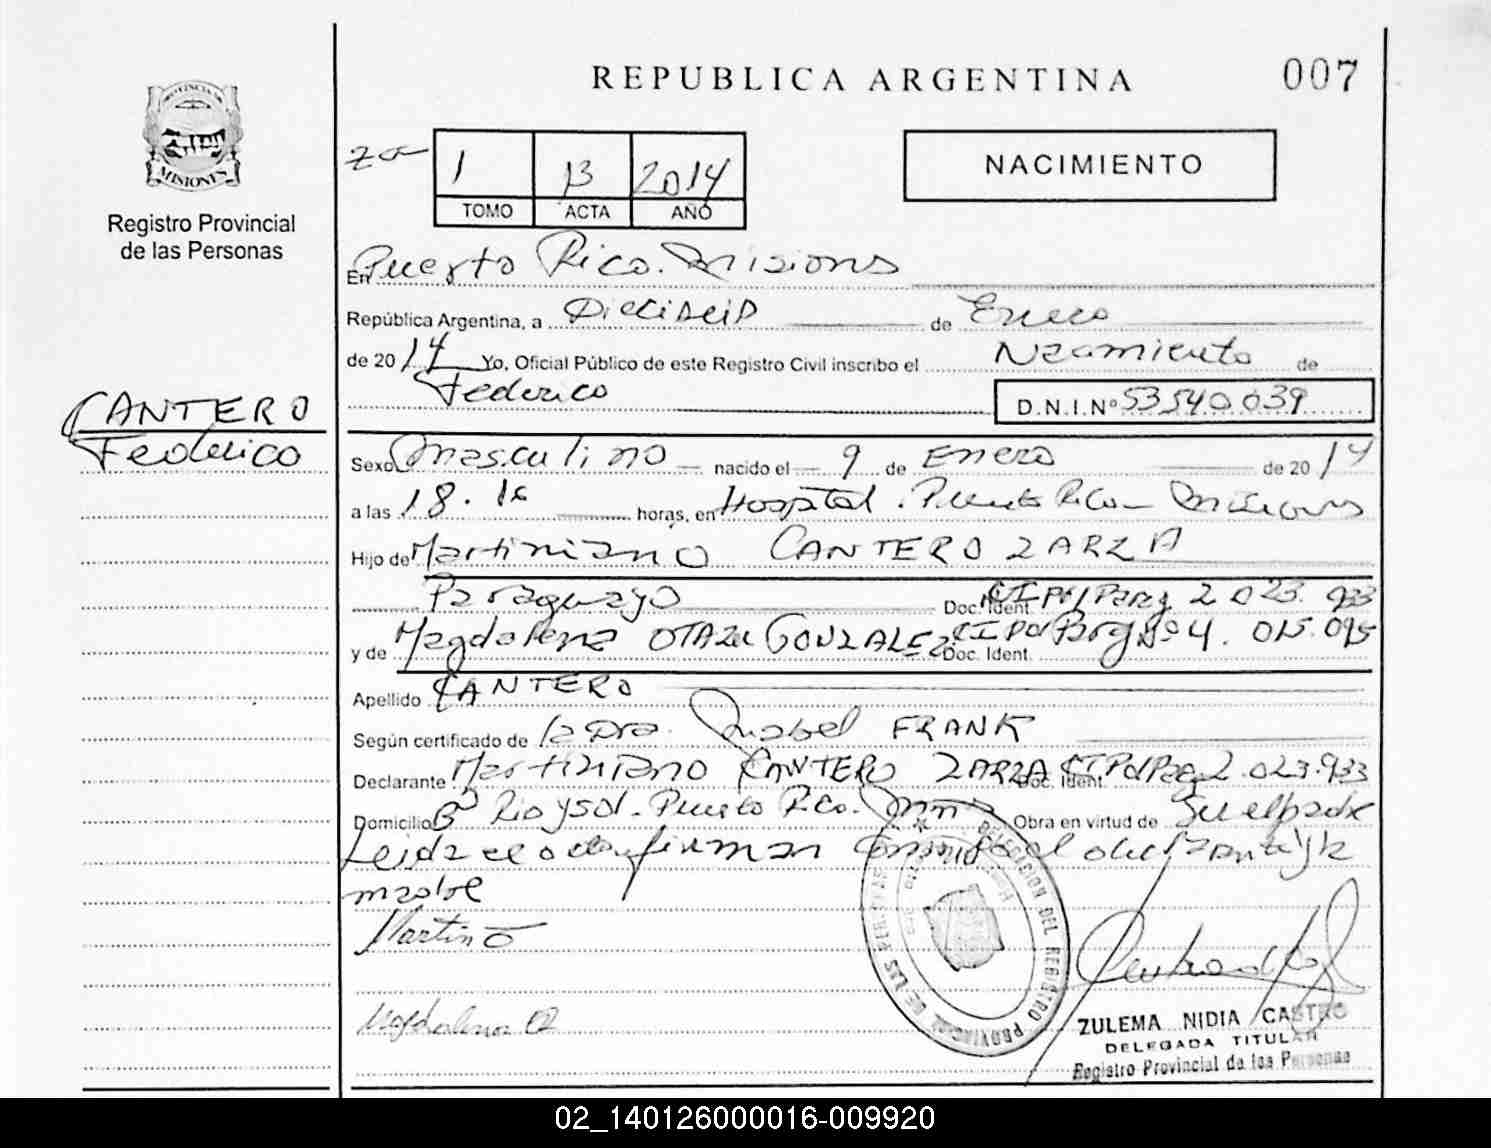 REPUBLICA ARGENTINA
007
PROVINCIA DE
MISIONES
Registro Provincial
de las Personas
1 13 2014
TOMO ACTA AÑO
NACIMIENTO
En Puerto Rico. Misiones
República Argentina, a Dieciseis de Enero
de 2014 Yo, Oficial Público de este Registro Civil inscribo el Nacimiento de
Federico
D.N.I.Nº 53540.039
CANTERO
Federico
Sexo Masculino nacido el 9 de Enero de 2014
a las 18.10 horas, en Hospital. Puerto Rico - Misiones
Hijo de Martiniano CANTERO ZARZA
Paraguayo Doc. Ident. CI Pol Parg 2.023.933
y de Magdalena OTAZU GONZALEZ Doc. Ident. CI Pol Parg Nº 4.015.095
Apellido CANTERO
Según certificado de la Dra. Mabel FRANK
Declarante Martiniano CANTERO ZARZA Doc. Ident. CI Pol Parg 2.023.933
Domicilio Bº Rio y Sol. Puerto Rico. Mnes Obra en virtud de Ser el padre
Leida el acta firman conmigo el declarante y la
madre
Martino
Magdalena O
DELEGACION DEL REGISTRO PROVINCIAL DE LAS PERSONAS
ZULEMA NIDIA CASTRO
DELEGADA TITULAR
Registro Provincial de las Personas
02_140126000016-009920